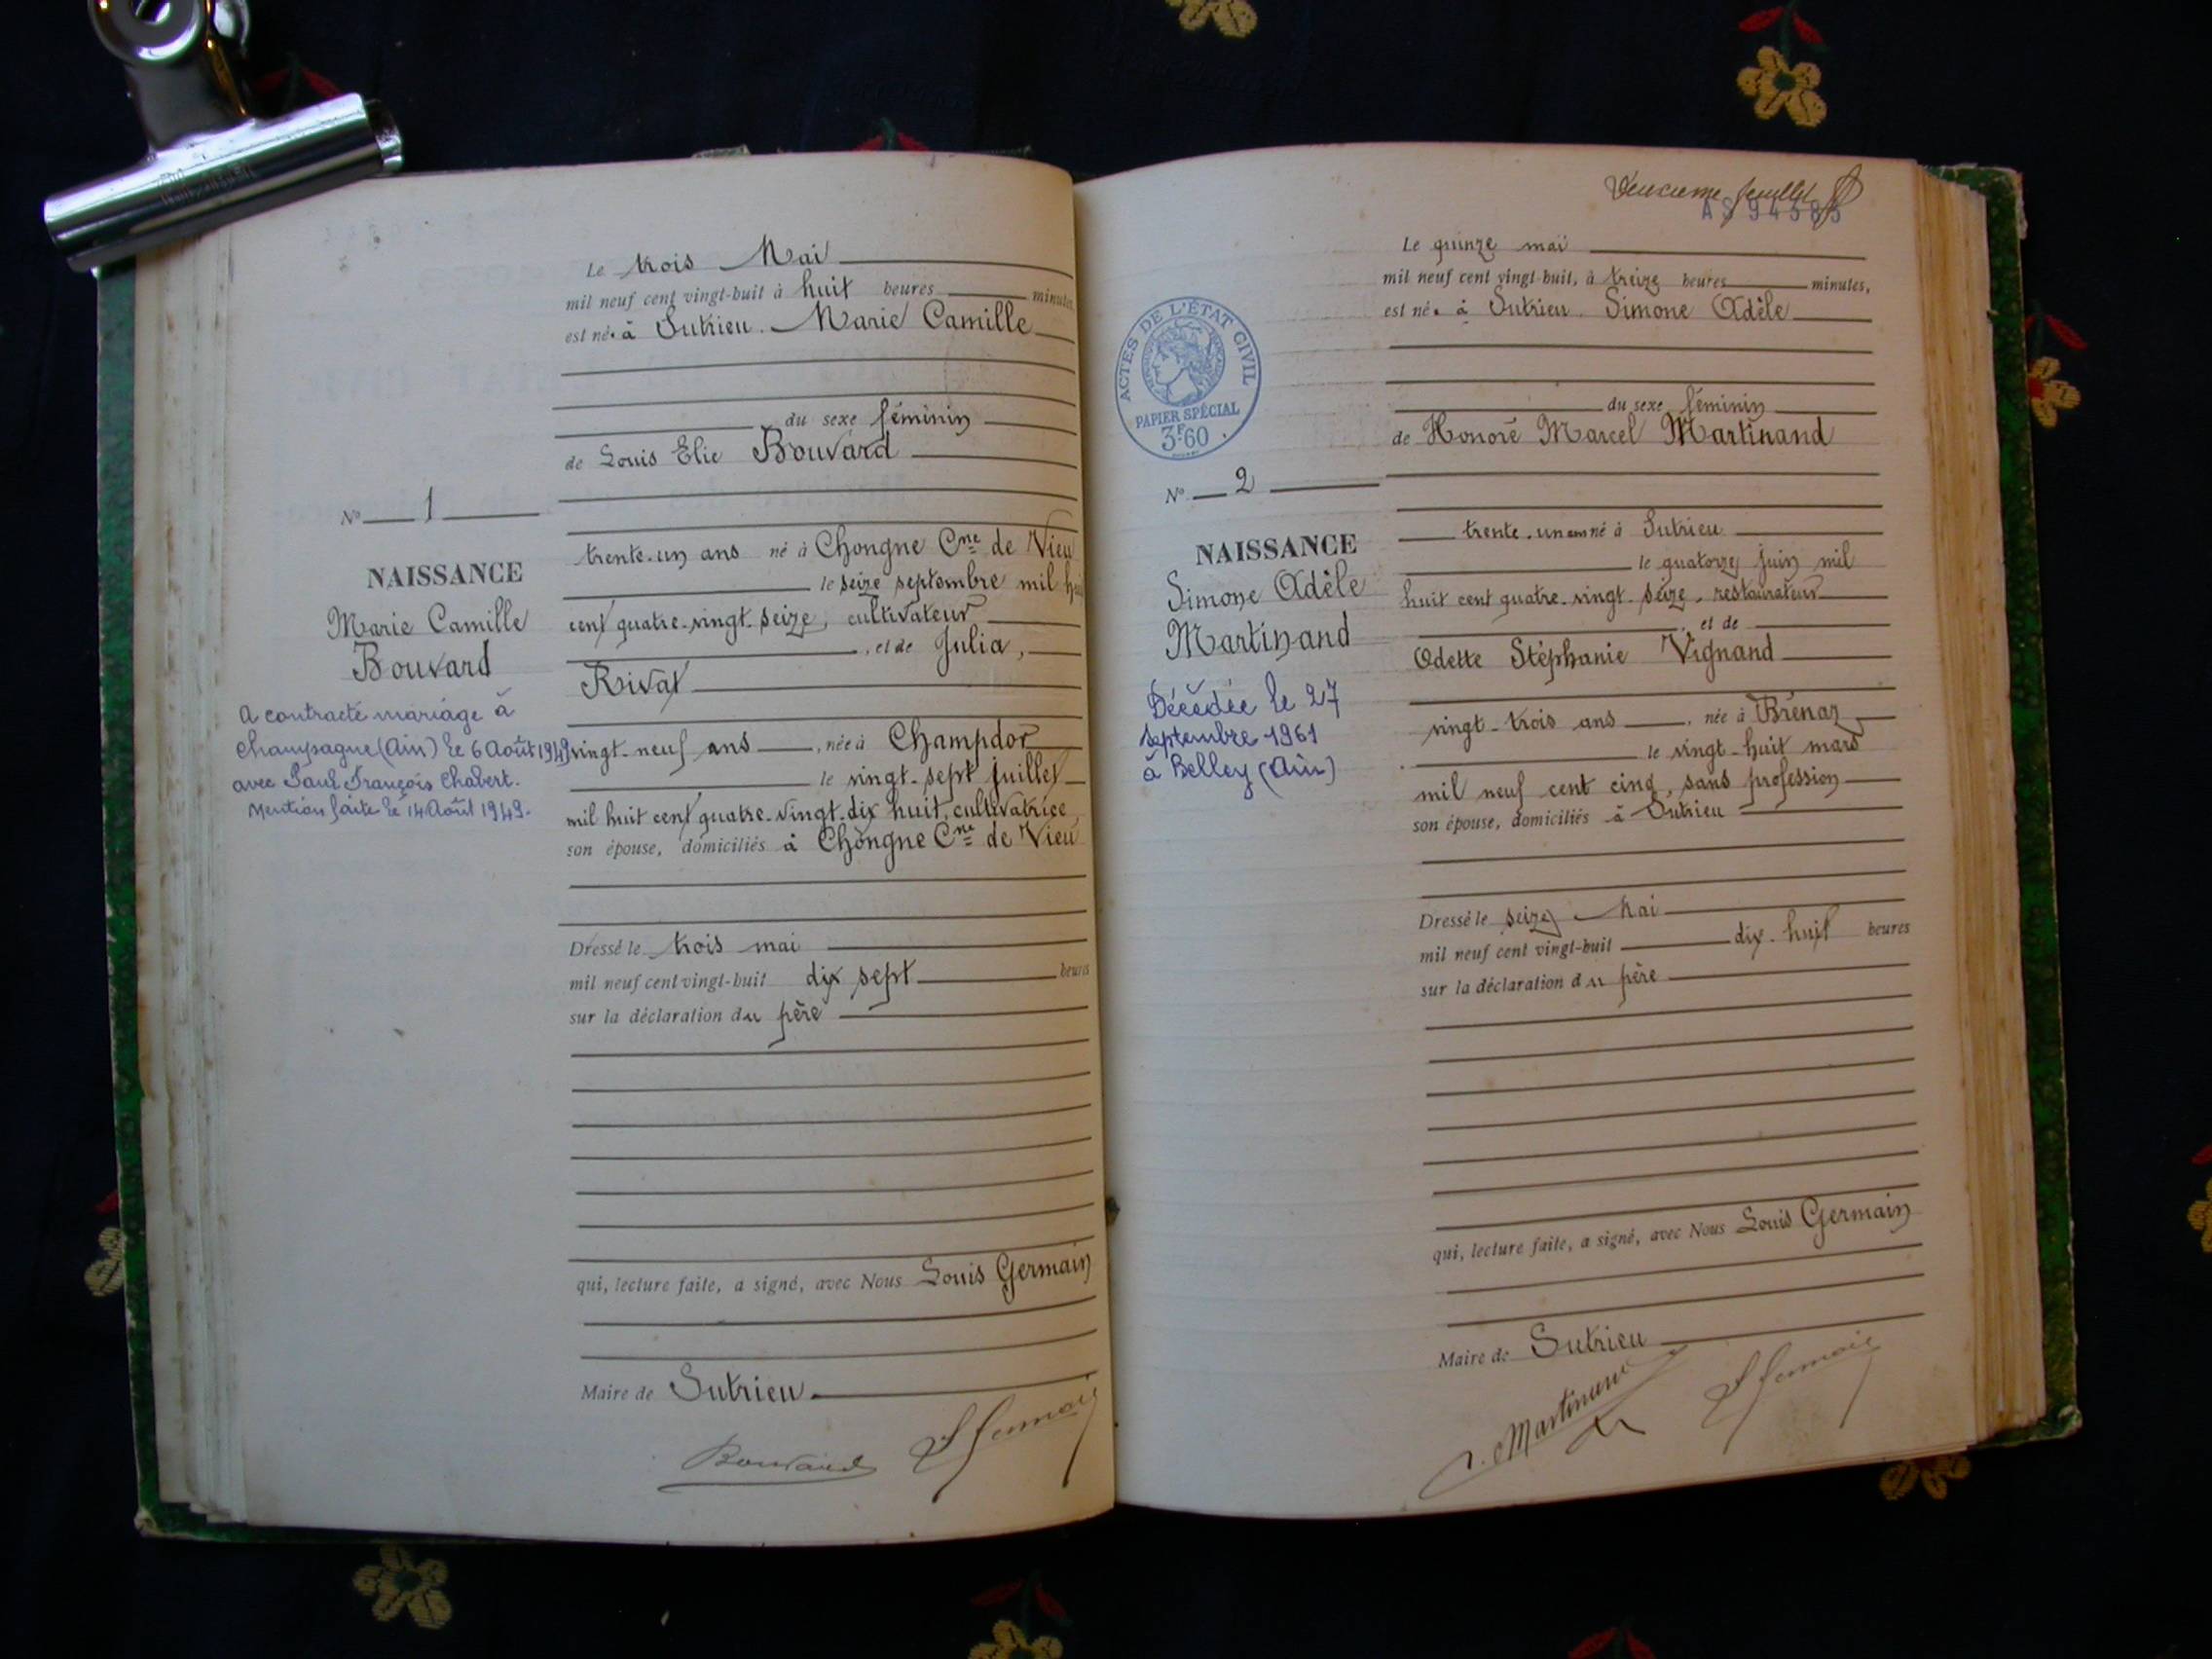 Le trois Mai
mil neuf cent vingt-huit à huit heures minutes,
est née à Sutrieu. Marie Camille
du sexe féminin
de Louis Elie Bouvard
N° 1
NAISSANCE
Marie Camille
Bouvard
A contracté mariage à
Champagne (Ain) le 6 Août 1949
avec Paul François Chabert.
Mention faite le 14 Août 1949.
trente-un ans né à Chongne Cne de Vieu
le seize septembre mil huit
cent quatre-vingt-seize, cultivateur
, et de Julia,
Rivat
vingt-neuf ans, née à Champdor
le vingt-sept juillet
mil huit cent quatre-vingt-dix huit, cultivatrice,
son épouse, domiciliés à Chongne Cne de Vieu
Dressé le trois mai
mil neuf cent vingt-huit dix sept heures
sur la déclaration du père
qui, lecture faite, a signé, avec Nous Louis Germain
Maire de Sutrieu.
Bouvard L Germain
Deuxième feuillet
AS 94585
Le quinze mai
mil neuf cent vingt-huit, à treize heures minutes,
est née à Sutrieu. Simone Adèle
du sexe féminin
de Honoré Marcel Martinand
ACTES DE L'ÉTAT CIVIL
PAPIER SPÉCIAL
3F60
N° 2
NAISSANCE
Simone Adèle
Martinand
Décédée le 27
septembre 1961
à Belley (Ain)
trente-un ans né à Sutrieu
le quatorze juin mil
huit cent quatre-vingt-seize, restaurateur
, et de
Odette Stéphanie Vignand
vingt-trois ans, née à Brénaz
le vingt-huit mars
mil neuf cent cinq, sans profession
son épouse, domiciliés à Sutrieu
Dressé le seize Mai
mil neuf cent vingt-huit dix-huit heures
sur la déclaration du père
qui, lecture faite, a signé, avec Nous Louis Germain
Maire de Sutrieu
Martinand L Germain